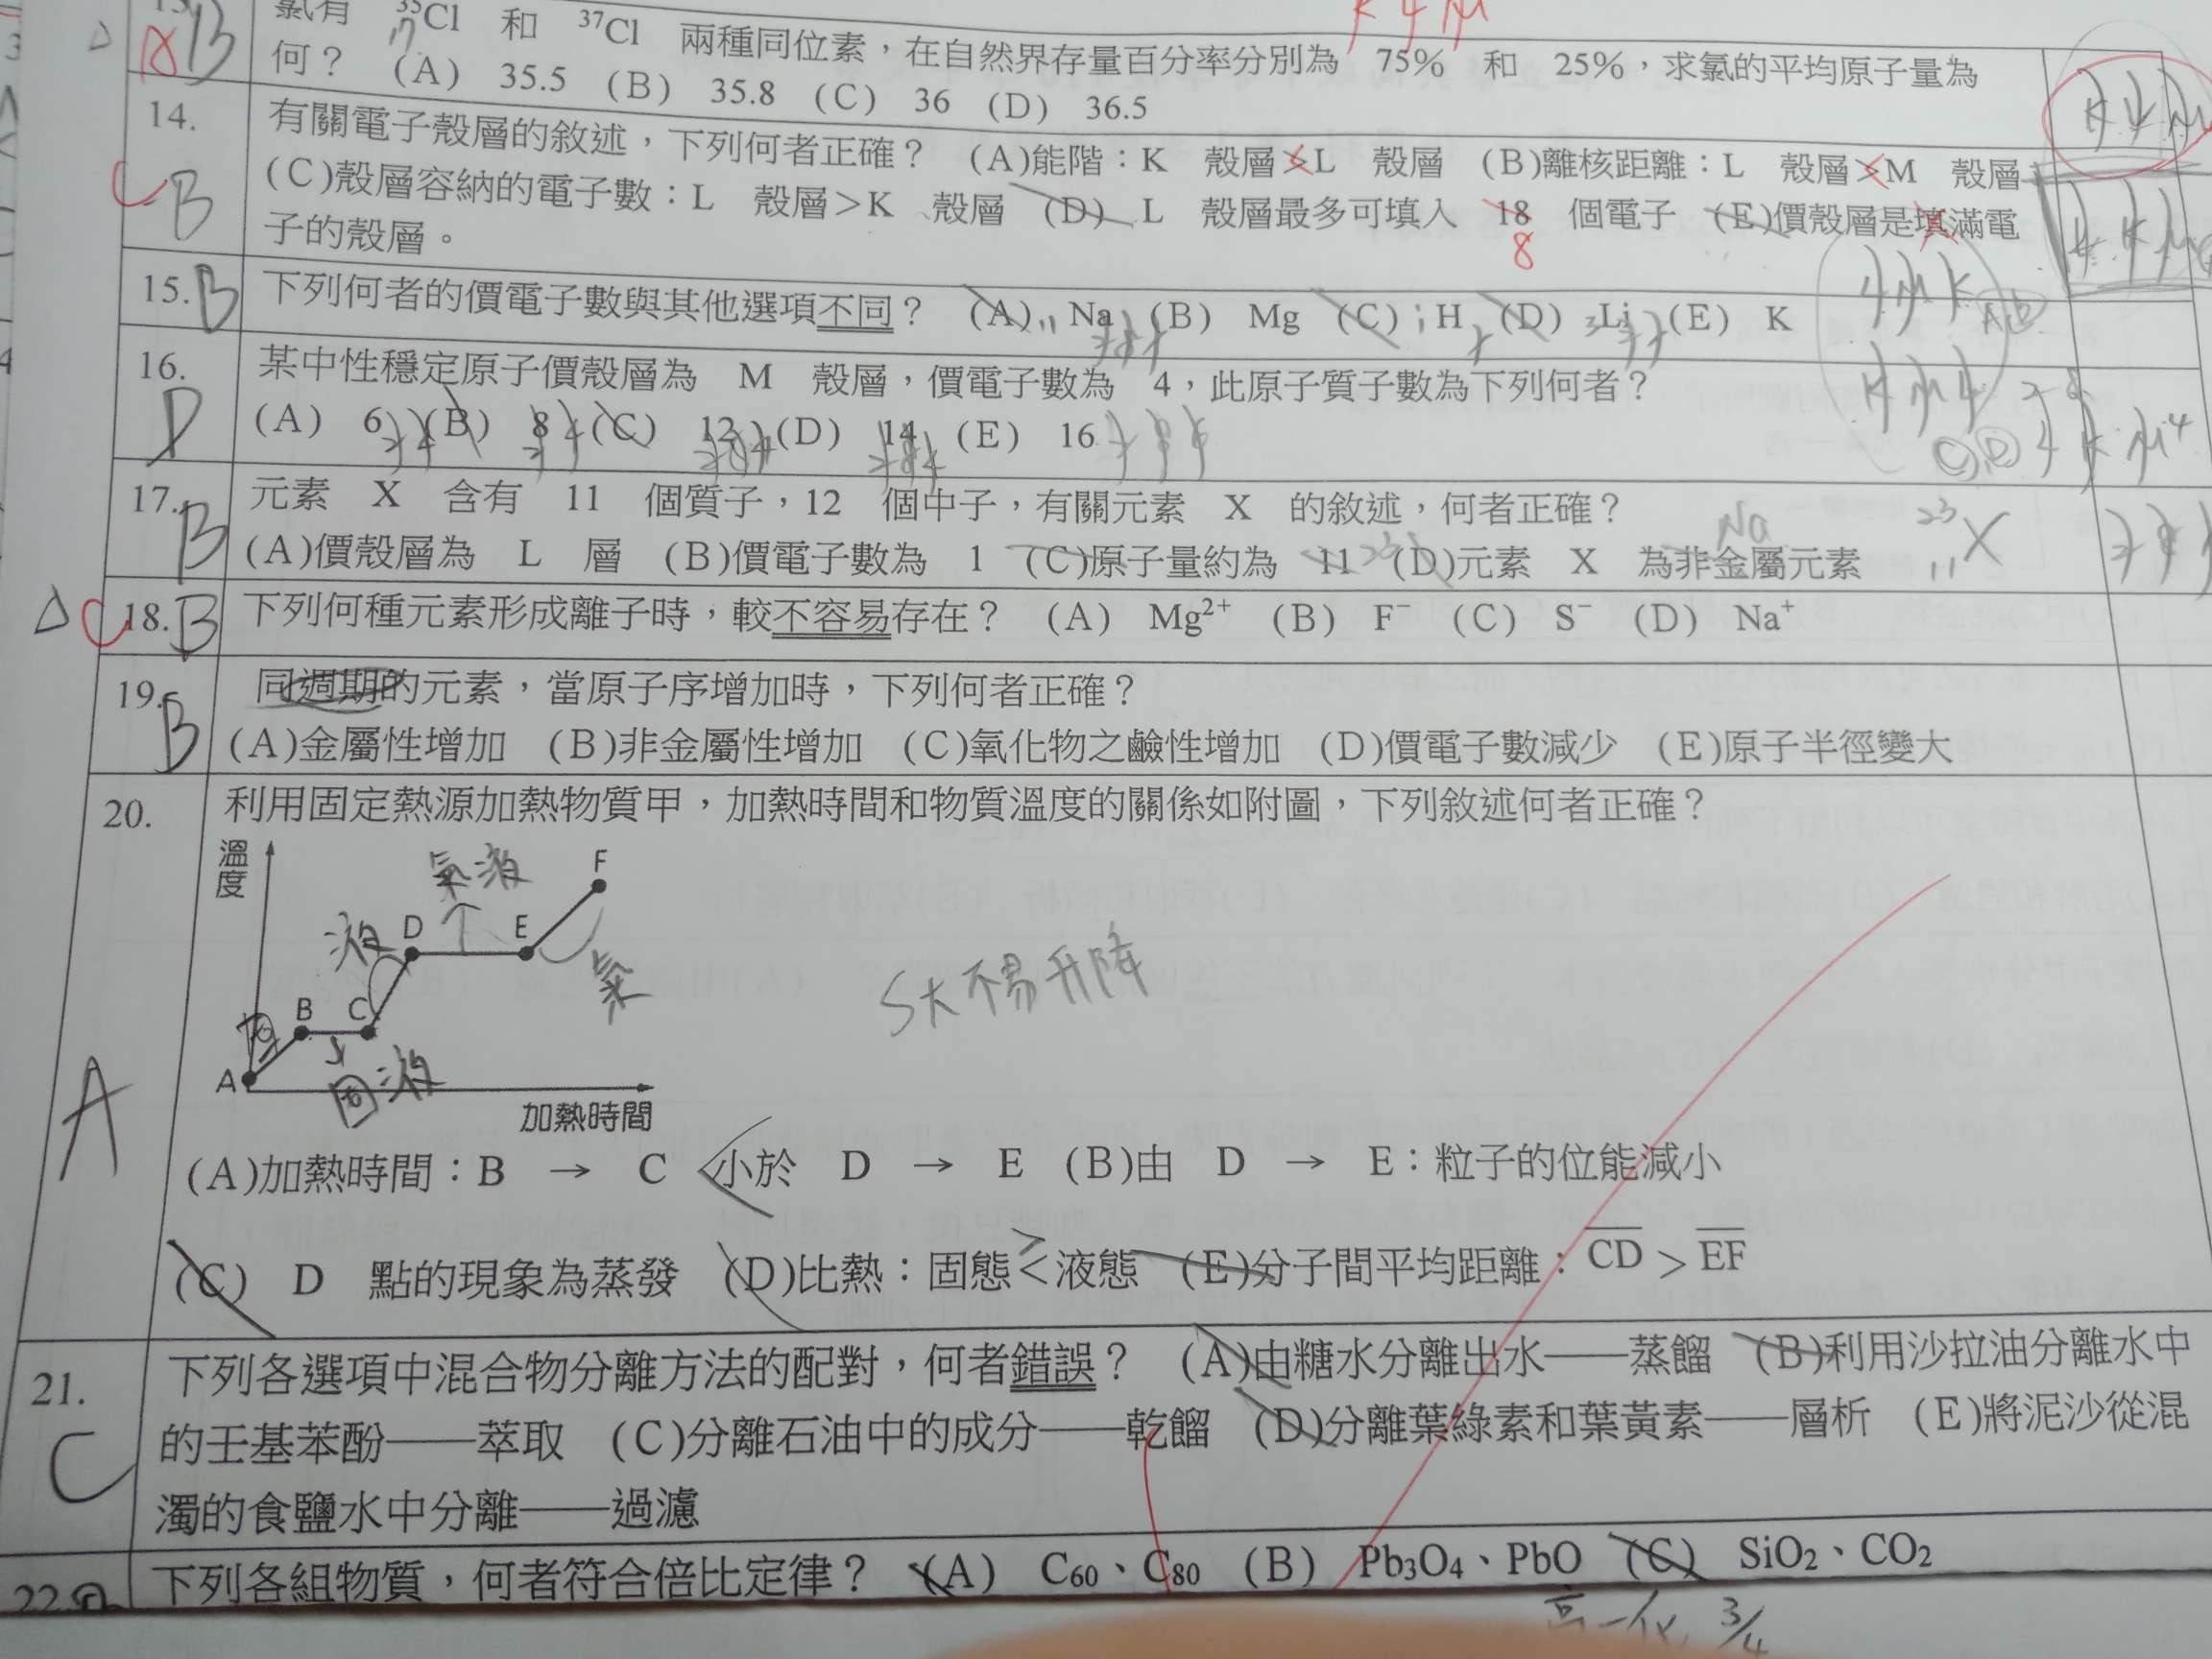 氯有 ³⁵Cl 和 ³⁷Cl 兩種同位素，在自然界存量百分率分別為 75% 和 25%，求氯的平均原子量為
何？ (A) 35.5 (B) 35.8 (C) 36 (D) 36.5
B
17
14. 有關電子殼層的敘述，下列何者正確？ (A)能階：K 殼層>L 殼層 (B)離核距離：L 殼層>M 殼層
(C)殼層容納的電子數：L 殼層>K 殼層 (D) L 殼層最多可填入 18 個電子 (E)價殼層是填滿電
子的殼層。
C B
8
15. B 下列何者的價電子數與其他選項不同？ (A) 11 Na (B) Mg (C) 1 H (D) 3 Li (E) K
16. 某中性穩定原子價殼層為 M 殼層，價電子數為 4，此原子質子數為下列何者？
(A) 6 (B) 8 (C) 12 (D) 14 (E) 16
D
17. 元素 X 含有 11 個質子，12 個中子，有關元素 X 的敘述，何者正確？
B
Na
²³₁₁X
(A)價殼層為 L 層 (B)價電子數為 1 (C)原子量約為 11 (D)元素 X 為非金屬元素
△ C 18. B 下列何種元素形成離子時，較不容易存在？ (A) Mg²⁺ (B) F⁻ (C) S⁻ (D) Na⁺
19. 同週期的元素，當原子序增加時，下列何者正確？
B
(A)金屬性增加 (B)非金屬性增加 (C)氧化物之鹼性增加 (D)價電子數減少 (E)原子半徑變大
20. 利用固定熱源加熱物質甲，加熱時間和物質溫度的關係如附圖，下列敘述何者正確？
溫度
氣液
F
液
D
E
氣
B
C
固
A
固液
加熱時間
S大不易升降
A
(A)加熱時間：B → C 小於 D → E (B)由 D → E：粒子的位能減小
(C) D 點的現象為蒸發 (D)比熱：固態<液態 (E)分子間平均距離：CD > EF
21. 下列各選項中混合物分離方法的配對，何者錯誤？ (A)由糖水分離出水——蒸餾 (B)利用沙拉油分離水中
C
的壬基苯酚——萃取 (C)分離石油中的成分——乾餾 (D)分離葉綠素和葉黃素——層析 (E)將泥沙從混
濁的食鹽水中分離——過濾
22. 下列各組物質，何者符合倍比定律？ (A) C₆₀、C₈₀ (B) Pb₃O₄、PbO (C) SiO₂、CO₂
3/4